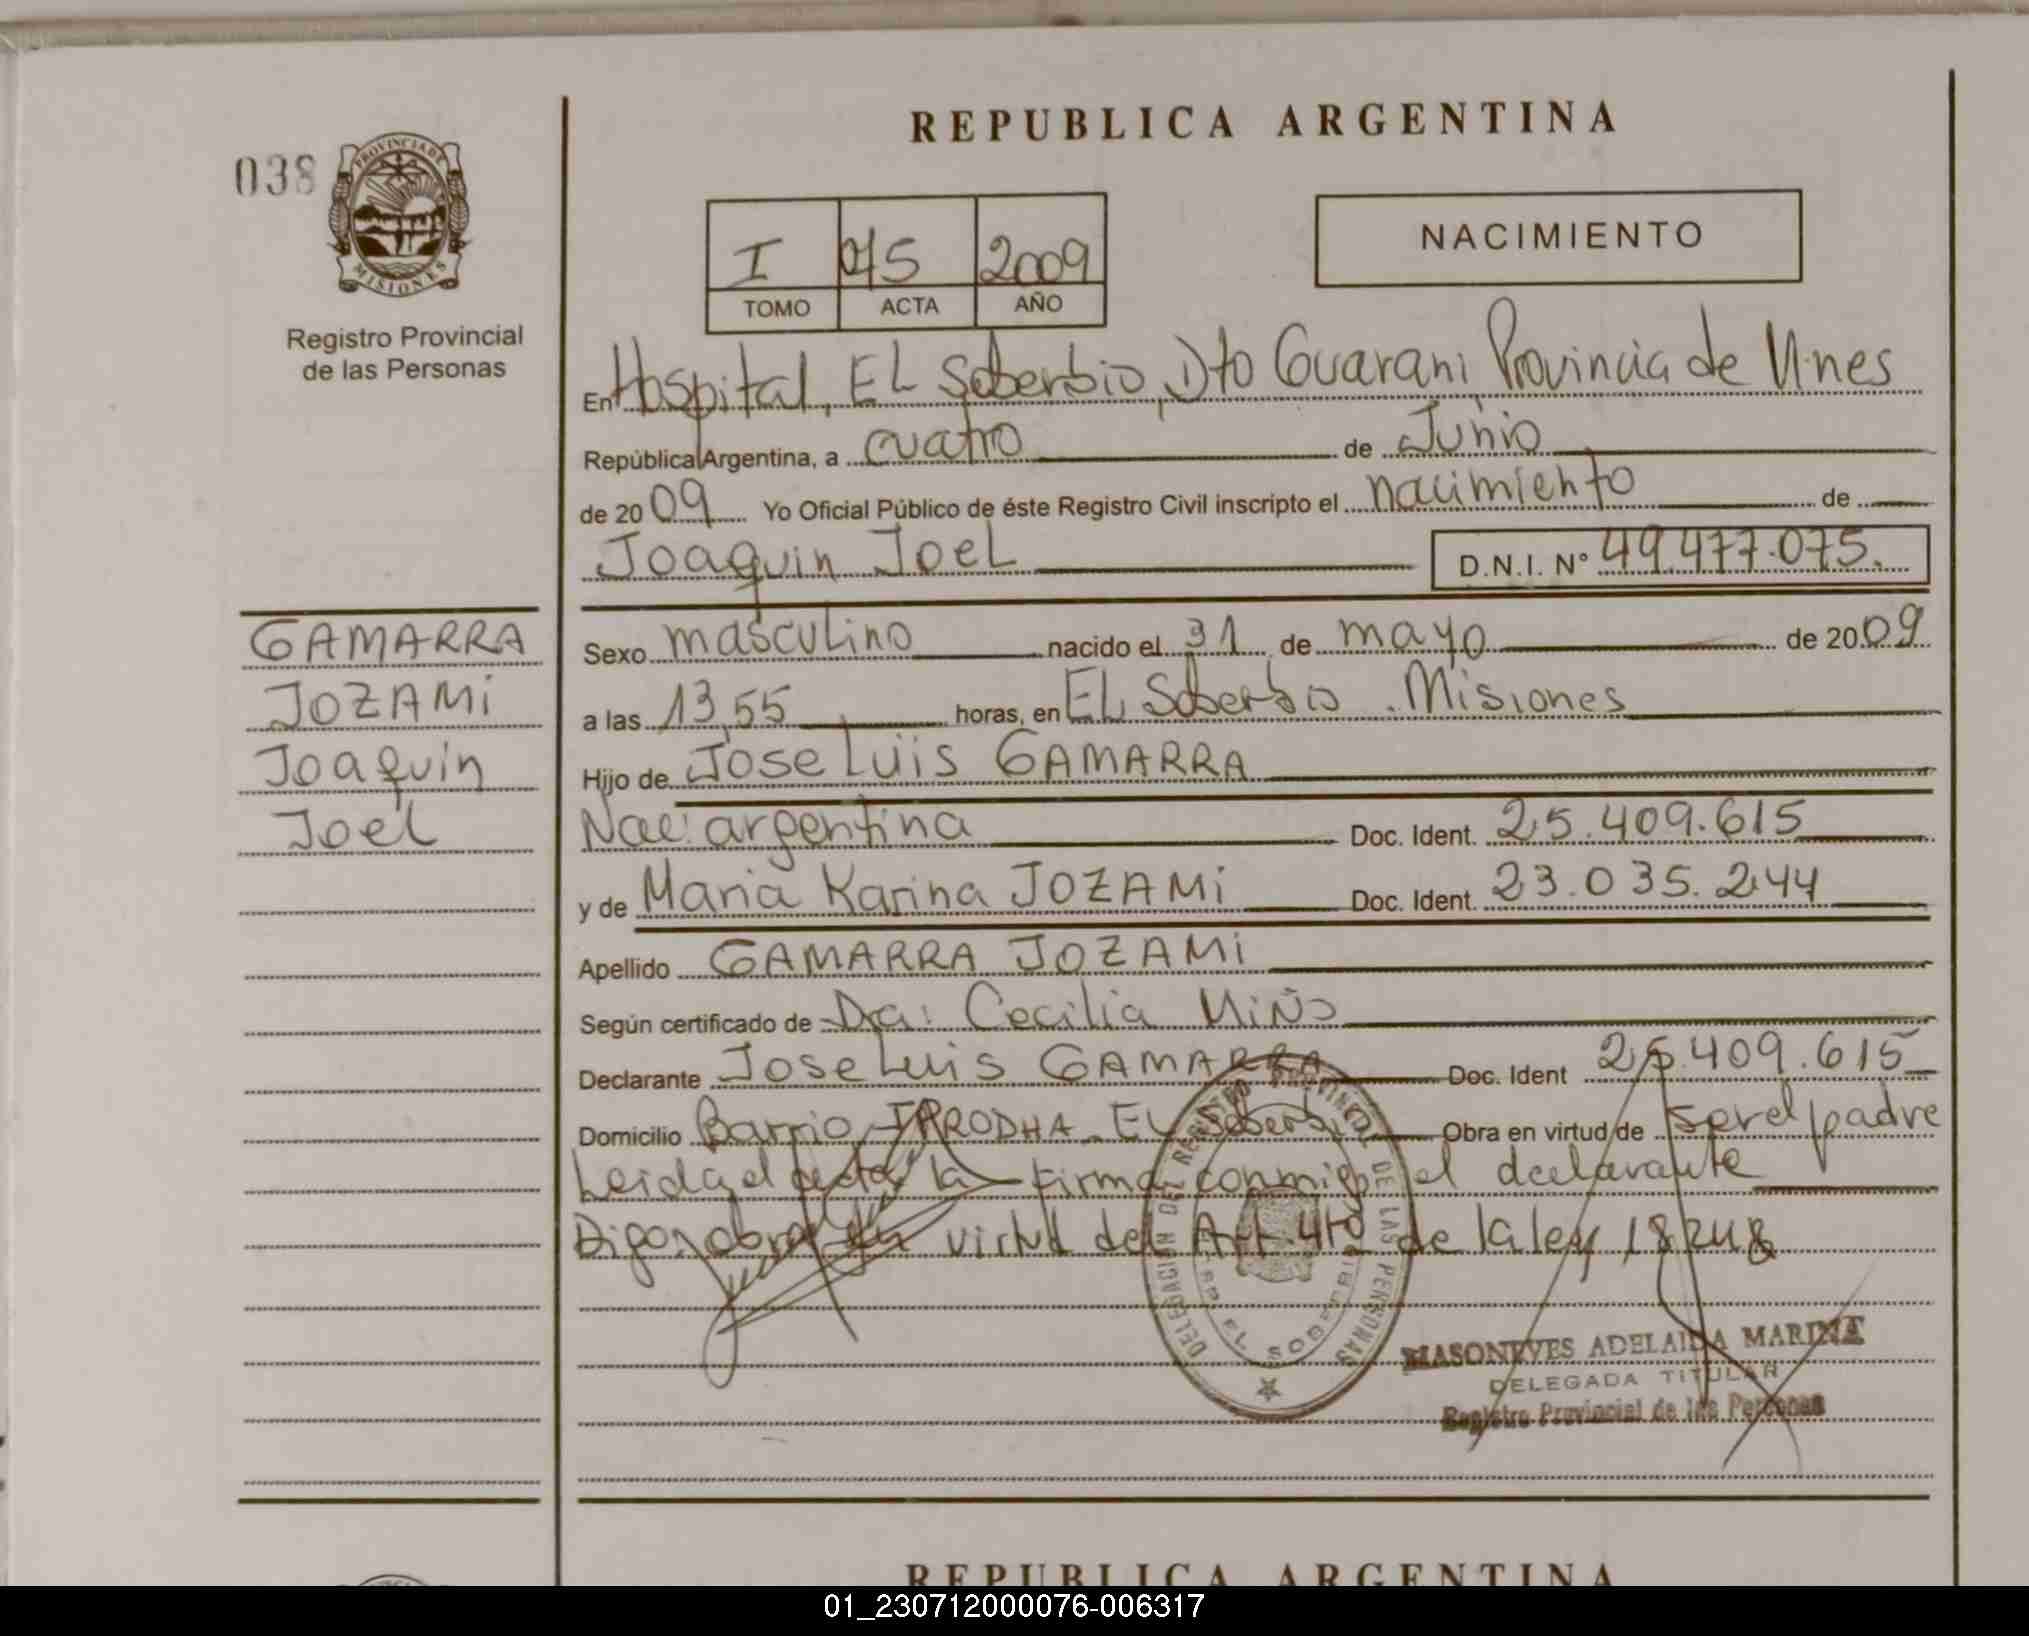 REPUBLICA ARGENTINA
038
PROVINCIA DE
MISIONES
Registro Provincial
de las Personas
I 075 2009
TOMO ACTA AÑO
NACIMIENTO
En Hospital, EL Soberbio, Dto Guarani Provincia de Mnes
República Argentina, a cuatro de Junio
de 2009 Yo Oficial Público de éste Registro Civil inscripto el nacimiento de
Joaquin Joel D.N.I. N° 49.477.075.
GAMARRA
JOZAMi
Joaquin
Joel
Sexo masculino nacido el 31 de mayo de 2009
a las 13,55 horas, en EL Soberbio . Misiones
Hijo de Jose Luis GAMARRA
Nac: argentina Doc. Ident. 25.409.615
y de Maria Karina JOZAMi Doc. Ident. 23.035.244
Apellido GAMARRA JOZAMi
Según certificado de Dra: Cecilia Miño
Declarante Jose Luis GAMARRA Doc. Ident 25.409.615
Domicilio Barrio EL Soberbio Obra en virtud de ser el padre
Leida el acta la firma conmigo el declarante
Digo: obra en virtud del Art. 4to de la ley 18248
DELEGACION DEL REGISTRO PROVINCIAL DE LAS PERSONAS
EL SOBERBIO
MASONEVES ADELAIDA MARINA
DELEGADA TITULAR
Registro Provincial de las Personas
REPUBLICA ARGENTINA
01_230712000076-006317